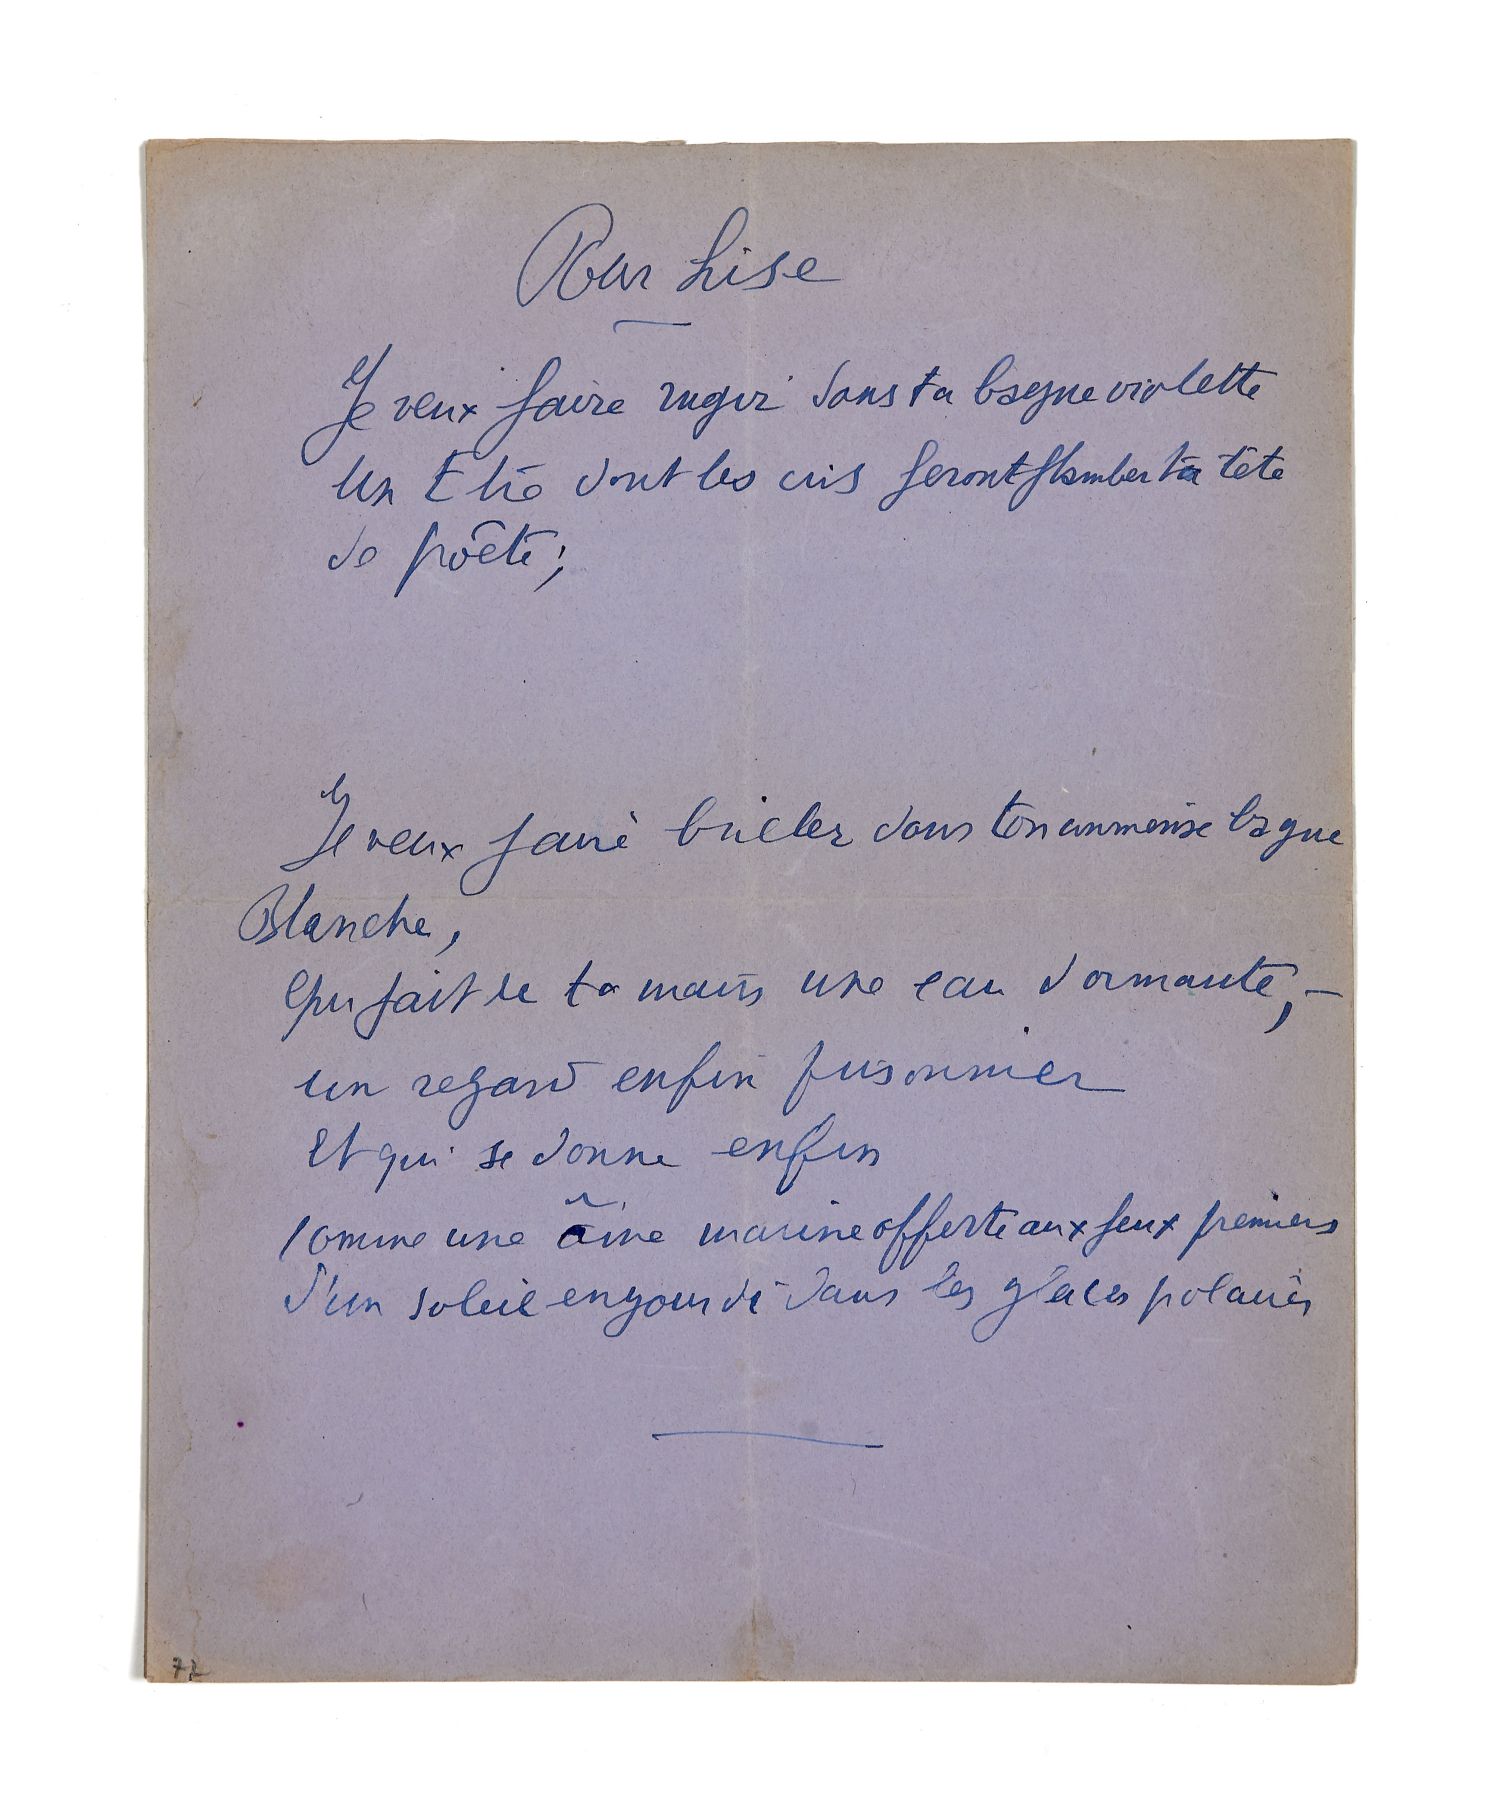 Pour Lise
Je veux faire rugir dans ta bague violette
Un Eté dont les cris feront flamber ta tête
de poête;
Je veux faire briller dans ton immense bague
Blanche,
Qui fait de ta main une eau dormante, –
un regard enfin prisonnier
Et qui se donne enfin
comme une âme marine offerte aux feux premiers
d'un soleil engourdi dans les glaces polaires
72